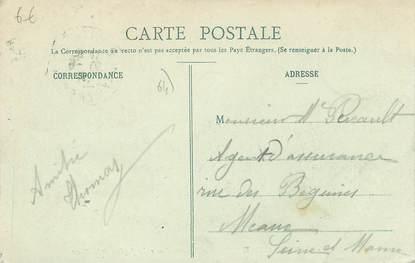 6€
CARTE POSTALE
La Correspondance au recto n'est pas acceptée par tous les Pays Étrangers. (Se renseigner à la Poste.)
CORRESPONDANCE
ADRESSE
64)
Monsieur Mr
Agent d'assurance
rue des Béguines
Meaux
Seine et Marne
Amitié
Thomas